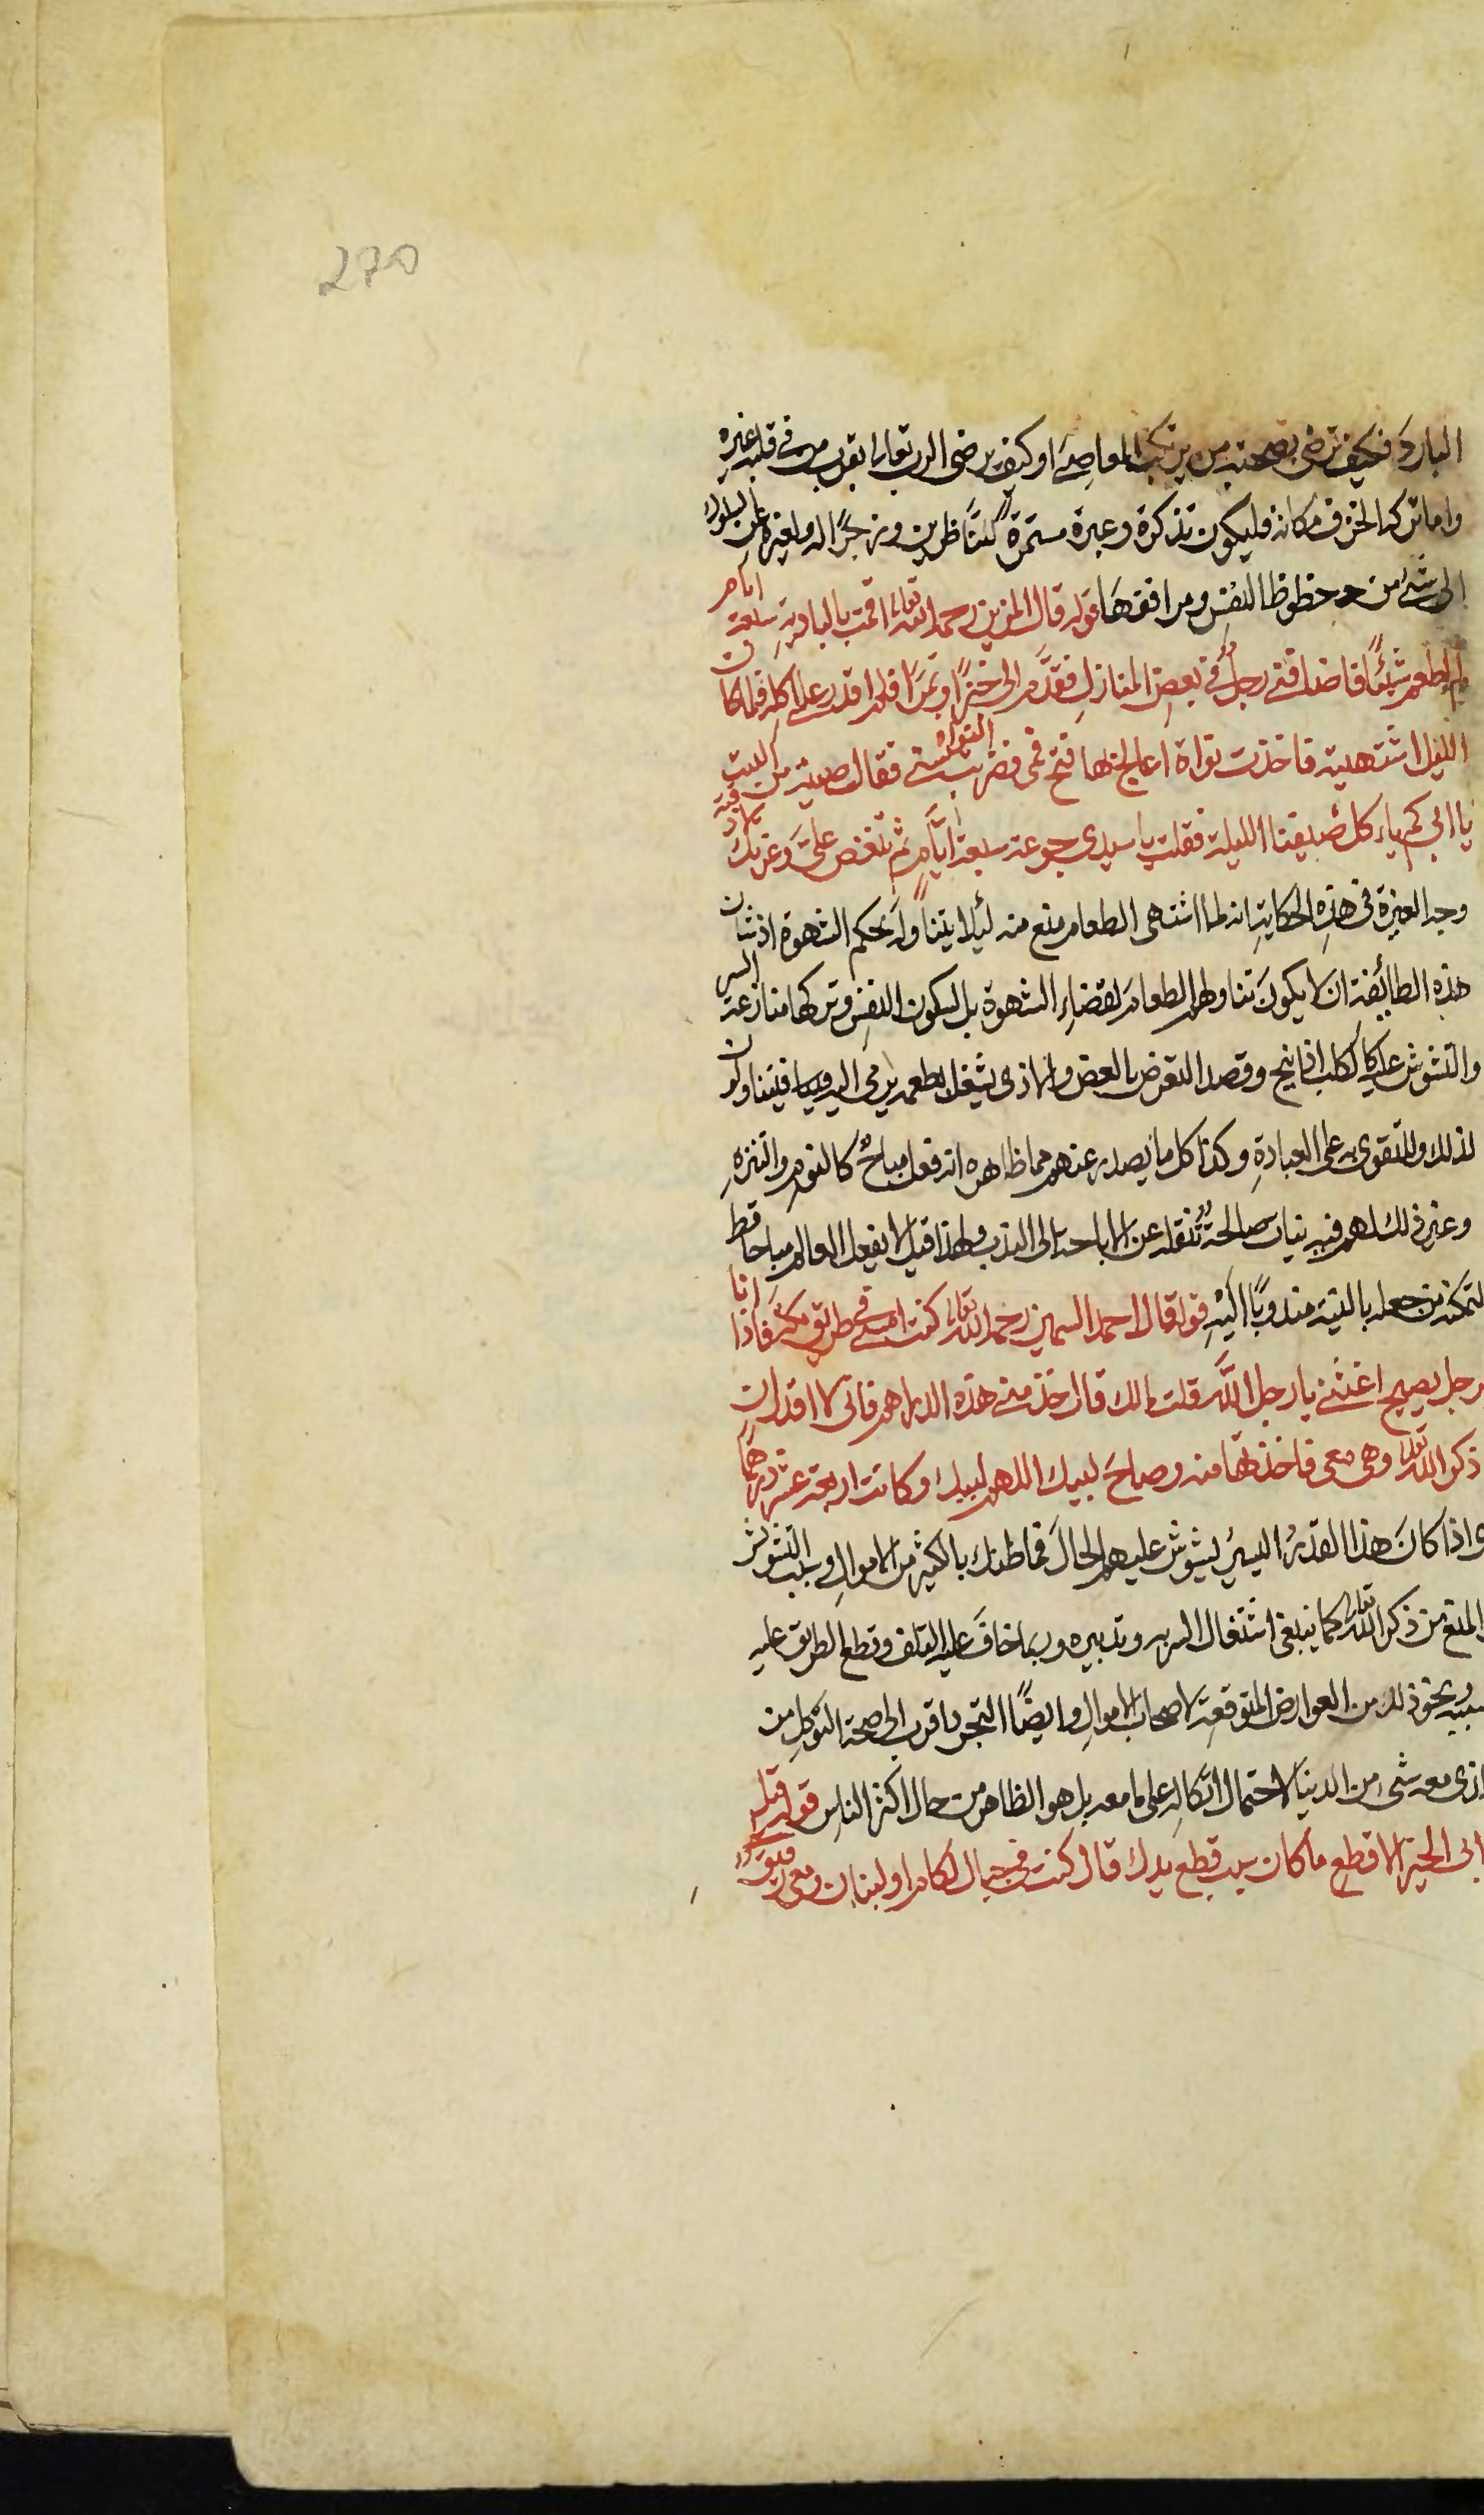 270
البارد فكيف ترضى بصحبته من يرتكب المعاصي او كيف يرضى الرب تعالى بقرب من في قلبه غيره
واما تركه الخزف مكانه فليكون تذكرة وعبرة مستمرة للناظرين وزجرًا له ولغيره عن السلوك
الى شئ من حظوظ النفس ومرافقها قوله قال المزين رحمه الله تعالى اقمت بالبادية سبعة ايام
لم اطعم شيئًا فاضافني رجلٌ في بعض المنازل فقدم الى خبزًا وتمرًا فلم اقدر على اكله فلما كان
الليل اشتهيته فاخذت نواة اعالج بها فتح فمي فضربت النواة سني فقالت صبية من البيت
يا ابي كم ياكل ضيفنا الليلة فقلت يا سيدي جوعة سبعة ايام ثم تنغص على وعزتك لا ذقته
وجه العبرة في هذه الحكاية انه لما اشتهى الطعام منع منه لئلا يتناوله بحكم الشهوة اذ شان
هذه الطائفة ان لا يكون تناولهم الطعام لقضاء الشهوة بل لسكون النفس وتركها منازعة السر
والتشوش عليه كالكلب اذا نبح وقصد التعرض بالعض والاذى يشغل بطعم يرمى اليه فيتناولون
لذلك وللتقوى به على العبادة وكذا كل ما يصدر عنهم مما ظاهره انه فعل مباح كالنوم والتنزه
وغير ذلك لهم فيه نيات صالحة تنقله عن الاباحة الى الندب ولهذا قيل لا يفعل العالم مباحا قط
لتمكنه من جعله بالنية مندوبًا اليه قوله قال احمد السمين رحمه الله تعالى كنت امشي في طريق مكة فاذا انا
رجل يصيح اغثني يا رجل الله قلت مالك قال خذ مني هذه الدراهم فاني لا اقدر ان
ذكر الله تعالى وهي معي فاخذتها منه وصاح لبيك اللهم لبيك وكانت اربعة عشر درهمًا
واذا كان هذا القدر اليسير يشوش عليهم الحال فما ظنك بالكثير من الاموال وسبب التشويش
المنع من ذكر الله تعالى كما ينبغي اشتغال السر به وتدبيره وربما خاف عليه التلف وقطع الطريق عليه
بسببه ونحو ذلك من العوارض المتوقعة لاصحاب الاموال وايضًا التجرد اقرب الى صحة التوكل من
الذي معه شئ من الدنيا لاحتمال اتكاله على ما معه بل هو الظاهر من حال اكثر الناس قوله قيل
لابي الخير الاقطع ما كان سبب قطع يدك قال كنت في جبال لكام او لبنان ومعي رفيق